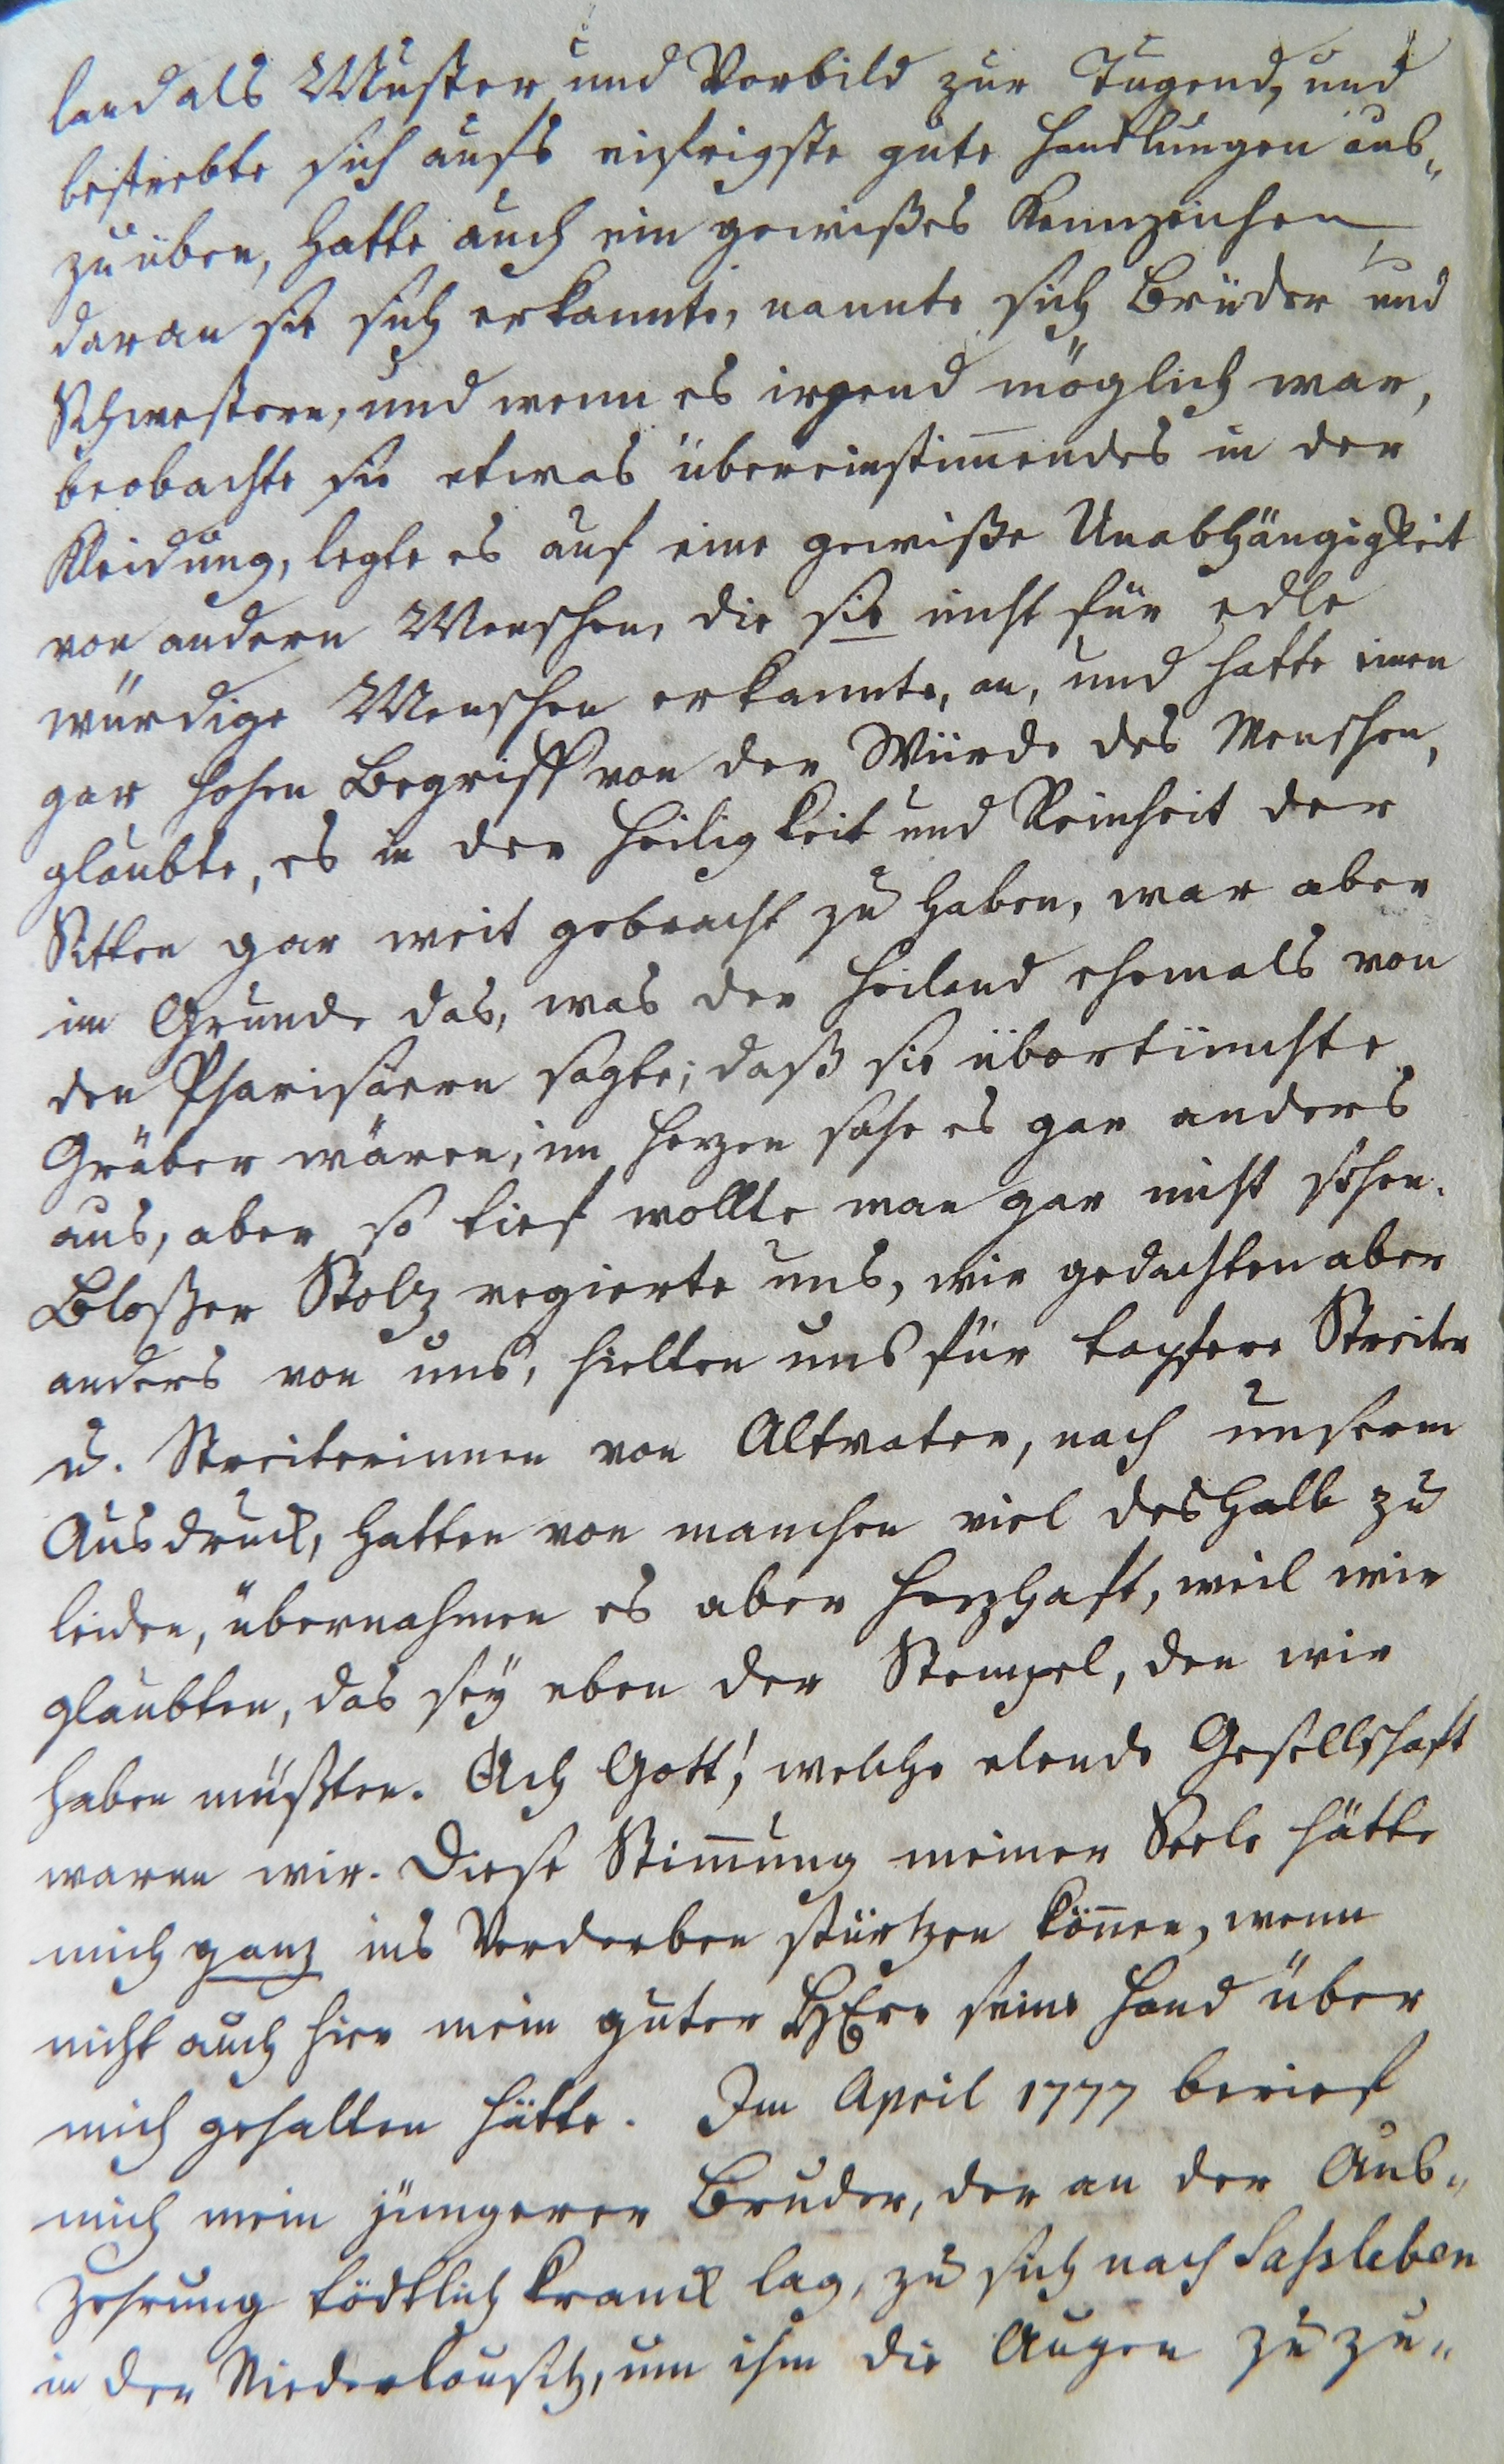 land als Muster und Vorbild zur Tugend, und
bestrebte sich aufs eifrigste gute Handlungen aus„
zuüben, hatte auch ein gewißes Kennzeichen,
daran sie sich erkannte, nannte sich Brüder und
Schwestern, und wenn es irgend möglich war,
beobachte sie etwas übereinstim̄endes in der
Kleidung, legte es auf eine gewiße Unabhängigkeit
von andern Menschen, die sie nicht für edle
würdige Menschen erkannte, an, und hatte einen
gar hohen Begriff von der Würde des Menschen,
glaubte, es in der Heiligkeit und Reinheit der
Sitten gar weit gebracht zu haben, war aber
im Grunde das, was der Heiland ehemals von
den Pharisäern sagte; daß sie übertünchte
Gräber wären; im Herzen sahe es gar anders
aus, aber so tief wollte man gar nicht sehen.
Bloßer Stolz regierte uns, wir gedachten aber
anders von uns, hielten uns für tapfere Streiter
u. Streiterinnen von Altvater, nach unserm
Ausdruck, hatten von manchen viel deshalb zu
leiden, übernahmen es aber herzhaft, weil wir
glaubten, das sey eben der Stempel, den wir
haben müßten. Ach Gott! welche elende Gesellschaft
waren wir. Diese Stim̄ung meiner Seele hätte
mich ganz ins Verderben stürtzen kön̄en, wenn
nicht auch hier mein guter HErr seine Hand über
mich gehalten hätte. Im April 1777 berief
mich mein jüngerer Bruder, der an der Aus„
zehrung tödtlich kranck lag, zu sich nach Saßleben
in der Niederlausitz, um ihm die Augen zuzu„